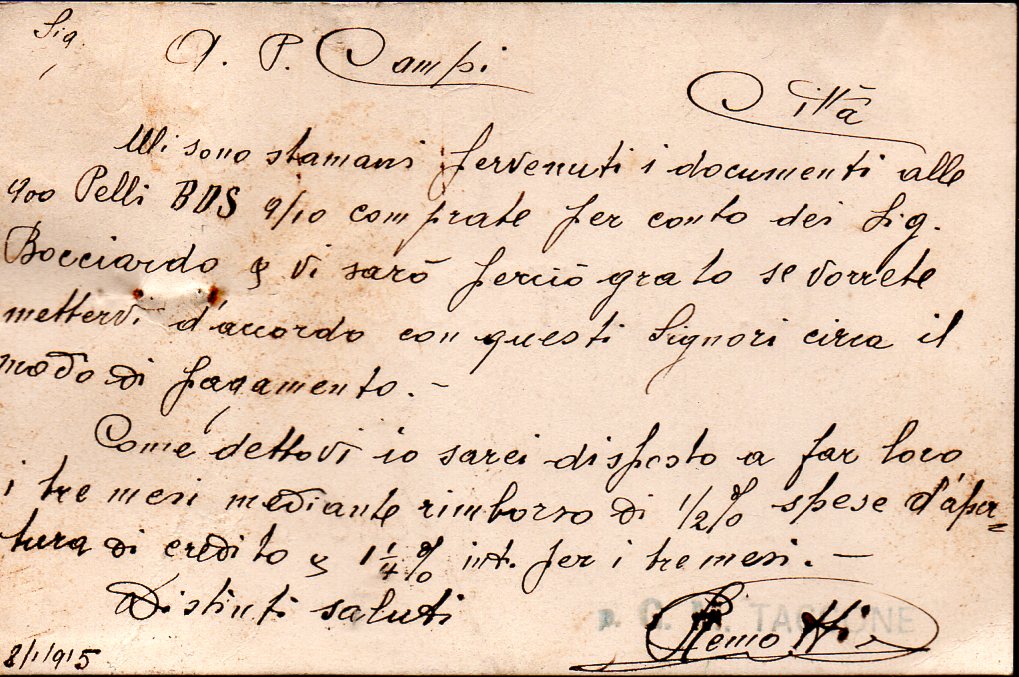 Sig.
A. P. Campi
Città
Mi sono stamani pervenuti i documenti alle
900 Pelli BDS 9/10 comprate per conto dei Sig.
Bocciardo e vi sarò perciò grato se vorrete
mettervi d'accordo con questi Signori circa il
modo di pagamento. -
Come dettovi io sarei disposto a far loro
i tre mesi mediante rimborso di 1/2% spese d'aper=
tura di credito e 1 1/4% int. per i tre mesi. -
Distinti saluti
p. G. M.
8/1/915